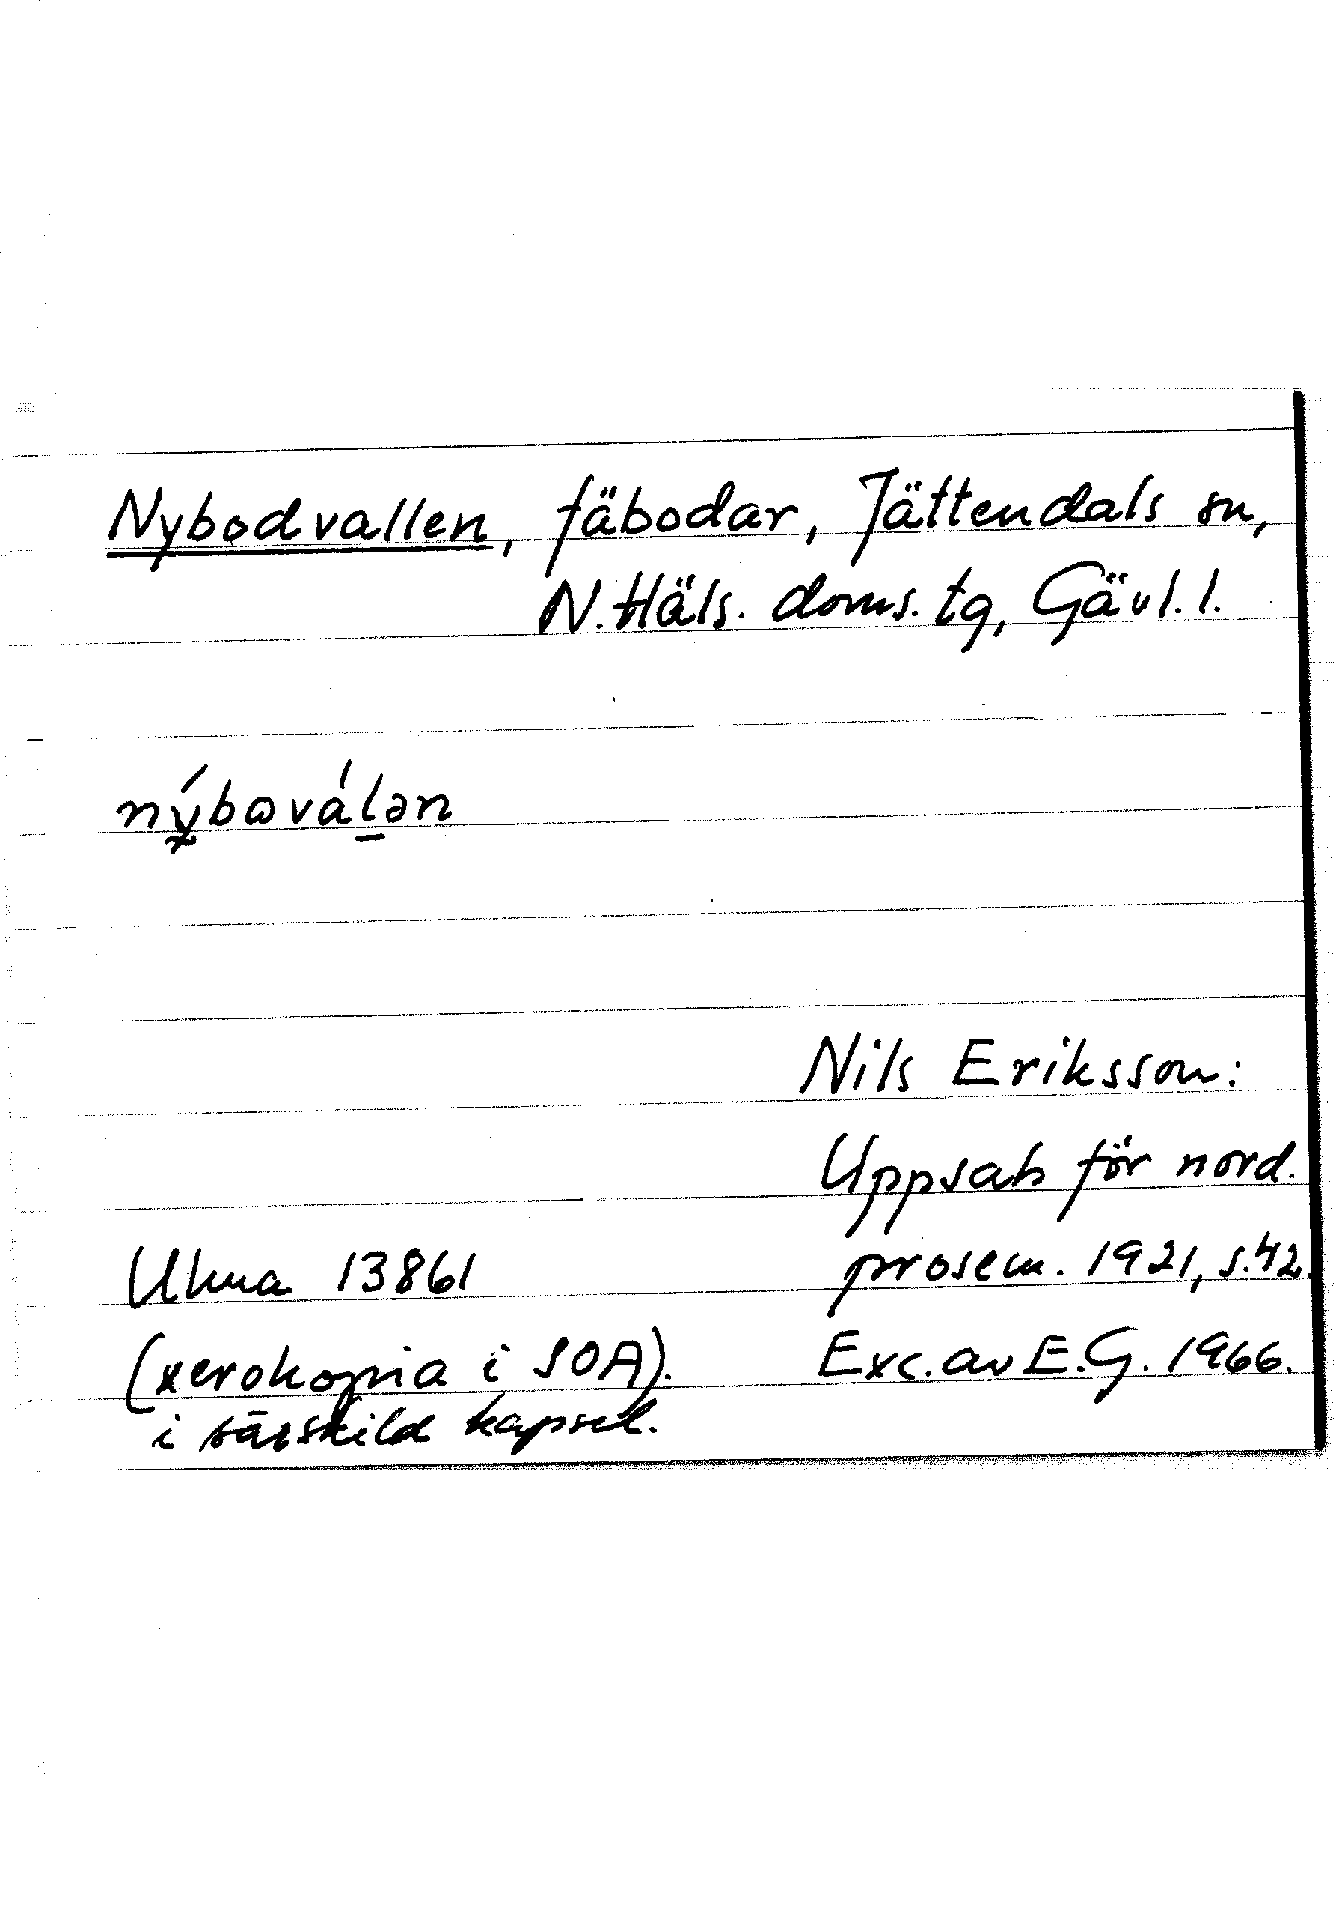 Nybodvallen, fäbodar, Jättendals sn,
N. Häls. doms. tg, Gävl. l.
nýbɷválən
Nils Eriksson:
Uppsats för nord.
Ulma 13861
prosem. 1921, s. 42.
(xerokopia i SOA).
Exc. av E.G. 1966.
i särskild kapsel.